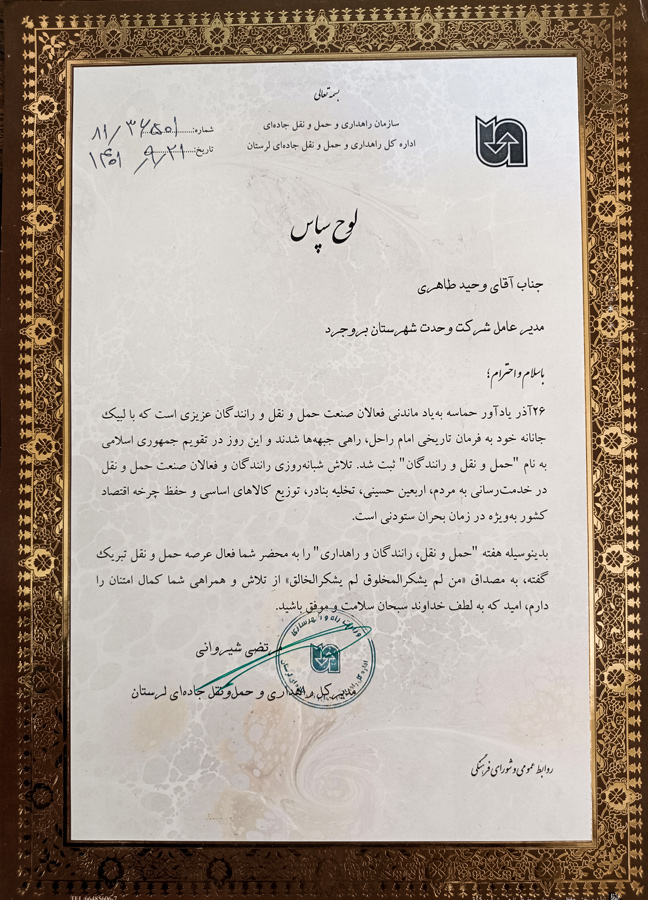 بسمه تعالی
سازمان راهداری و حمل و نقل جاده‌ای
اداره کل راهداری و حمل و نقل جاده‌ای لرستان
شماره: ۸۱/۳۶۵۰۱
تاریخ: ۱۴۰۱/۹/۲۱
لوح سپاس
جناب آقای وحید طاهری
مدیر عامل شرکت وحدت شهرستان بروجرد
باسلام و احترام؛
۲۶آذر یادآور حماسه به‌یاد ماندنی فعالان صنعت حمل و نقل و رانندگان عزیزی است که با لبیک
جانانه خود به فرمان تاریخی امام راحل، راهی جبهه‌ها شدند و این روز در تقویم جمهوری اسلامی
به نام "حمل و نقل و رانندگان" ثبت شد. تلاش شبانه‌روزی رانندگان و فعالان صنعت حمل و نقل
در خدمت‌رسانی به مردم، اربعین حسینی، تخلیه بنادر، توزیع کالاهای اساسی و حفظ چرخه اقتصاد
کشور به‌ویژه در زمان بحران ستودنی است.
بدینوسیله هفته "حمل و نقل، رانندگان و راهداری" را به محضر شما فعال عرصه حمل و نقل تبریک
گفته، به مصداق «من لم یشکرالمخلوق لم یشکرالخالق» از تلاش و همراهی شما کمال امتنان را
دارم، امید که به لطف خداوند سبحان سلامت و موفق باشید.
مرتضی شیروانی
مدیرکل راهداری و حمل‌ونقل جاده‌ای لرستان
وزارت راه و شهرسازی
روابط عمومی و شورای فرهنگی